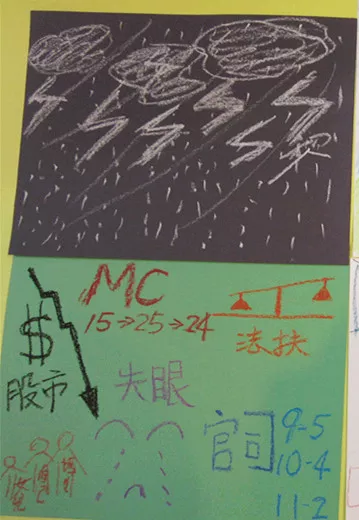 MC
15→25→24
$
股市
法扶
失眠
官司
9-5
10-4
11-2